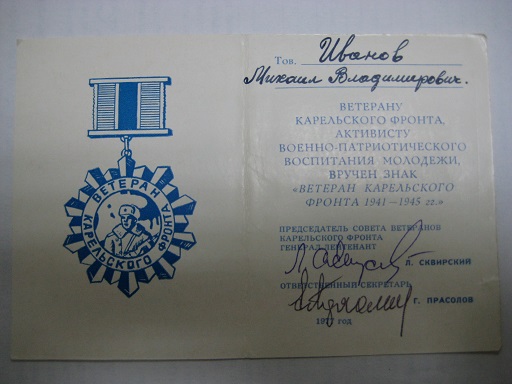 ВЕТЕРАН
КАРЕЛЬСКОГО ФРОНТА
Тов. Иванов
Михаил Владимирович.
ВЕТЕРАНУ
КАРЕЛЬСКОГО ФРОНТА,
АКТИВИСТУ
ВОЕННО-ПАТРИОТИЧЕСКОГО
ВОСПИТАНИЯ МОЛОДЕЖИ,
ВРУЧЕН ЗНАК
«ВЕТЕРАН КАРЕЛЬСКОГО
ФРОНТА 1941—1945 гг.»
ПРЕДСЕДАТЕЛЬ СОВЕТА ВЕТЕРАНОВ
КАРЕЛЬСКОГО ФРОНТА
ГЕНЕРАЛ-ЛЕЙТЕНАНТ
Л. СКВИРСКИЙ
ОТВЕТСТВЕННЫЙ СЕКРЕТАРЬ
Г. ПРАСОЛОВ
1977 год